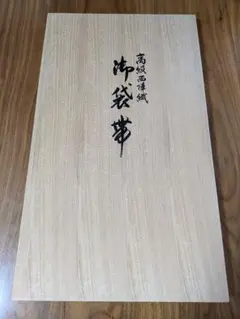 高級西陣織
御袋帯